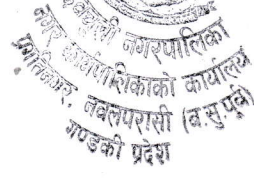 नगरपालिका
नगर कार्यपालिकाको कार्यालय
प्रगतिनगर, नवलपरासी (ब.सु.पूर्व)
गण्डकी प्रदेश